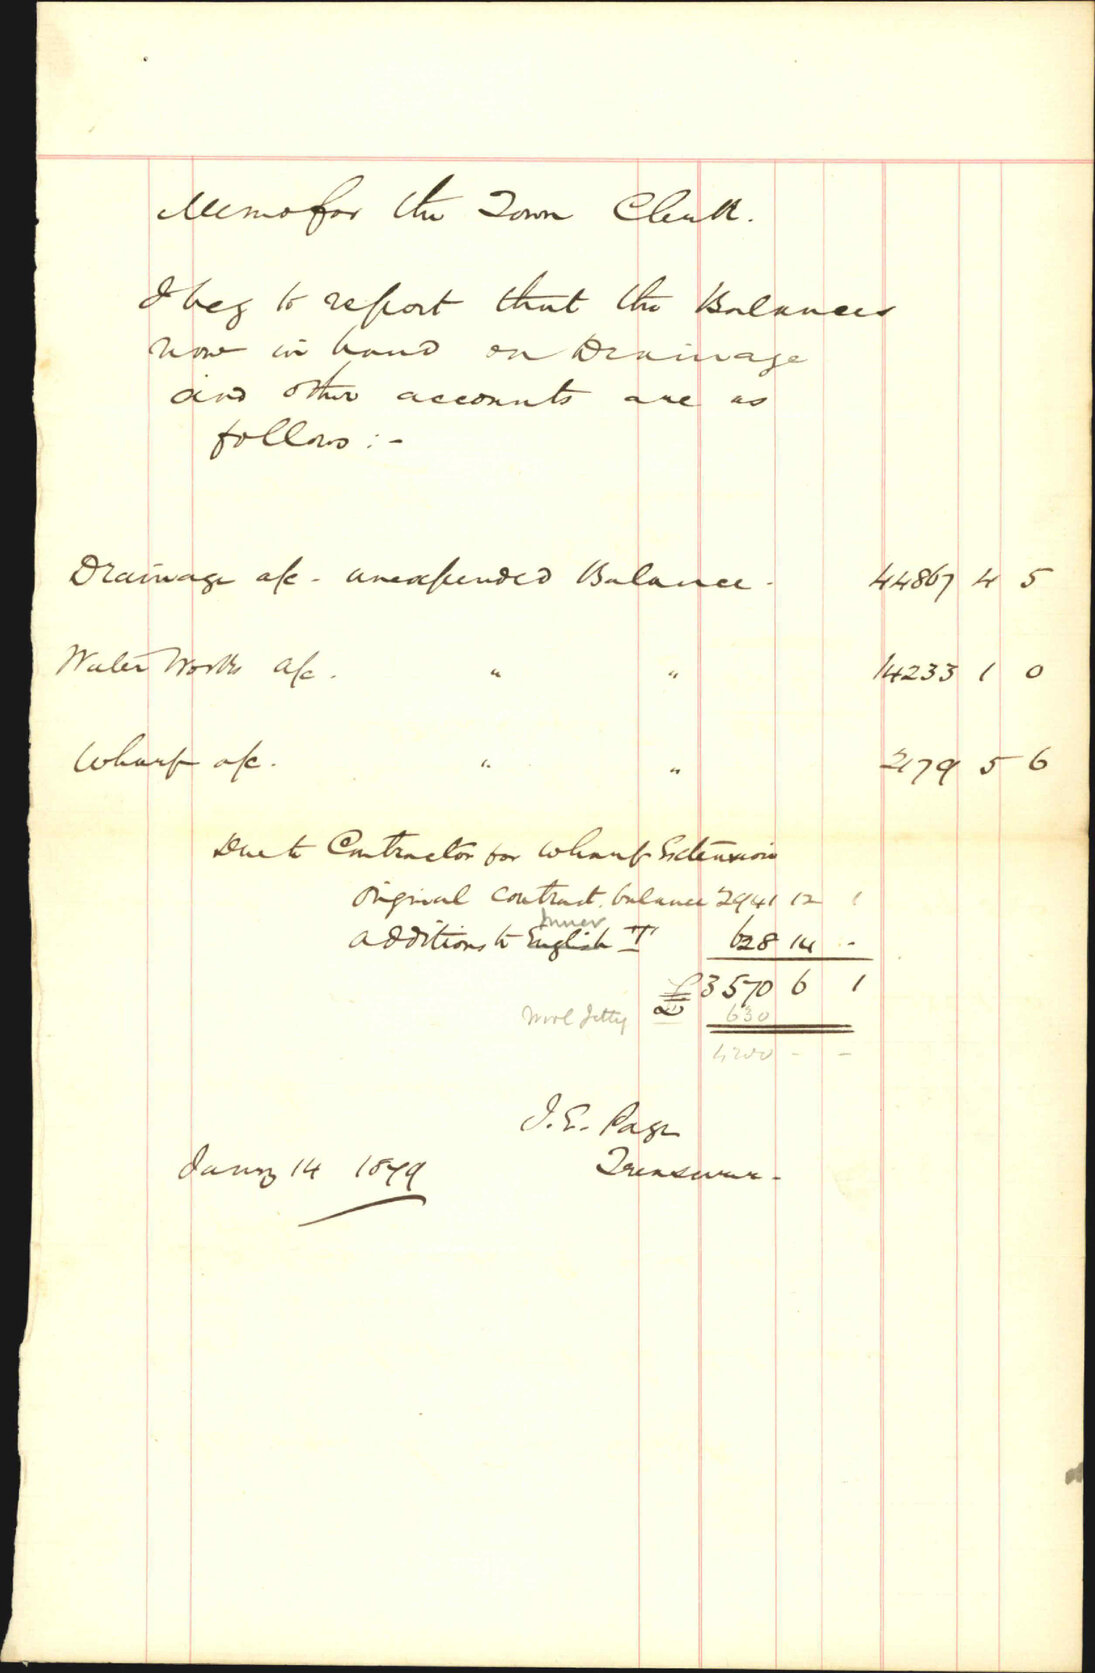 Memo for the Town Clerk.
I beg to report that the Balances
now in hand on Drainage
and other accounts are as
follows :-
Drainage a/c - unexpended Balance - 44867 4 5
Water Works a/c. " " 14233 1 0
Wharf a/c. " " 2179 5 6
Due to Contractor for Wharf Extension
Original Contract balance 2941 12 1
Inner
Additions to English "T" 628 14 -
£3570 6 1
Wool Jetty 630
4200 - -
J. E. Page
Janry 14 1879 Treasurer -